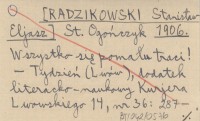 [RADZIKOWSKI Stanisław
Eljasz] St. Ogończyk 1906.
Wszystko się pomału traci!
— Tydzień (Lwów), dodatek
literacko-naukowy Kurjera
Lwowskiego 14, nr 36: 287—